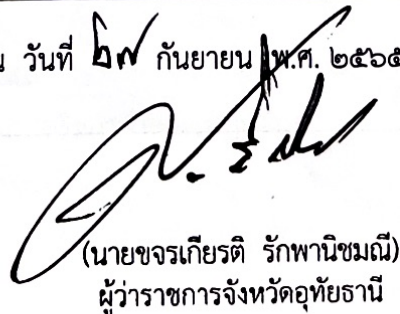 วันที่ ๒๗ กันยายน พ.ศ. ๒๕๖๕
(นายขจรเกียรติ รักพานิชมณี)
ผู้ว่าราชการจังหวัดอุทัยธานี